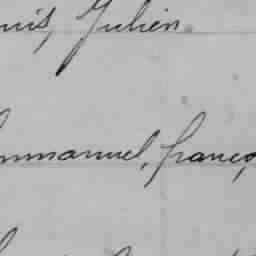 uis, Julien
mmanuel, franço